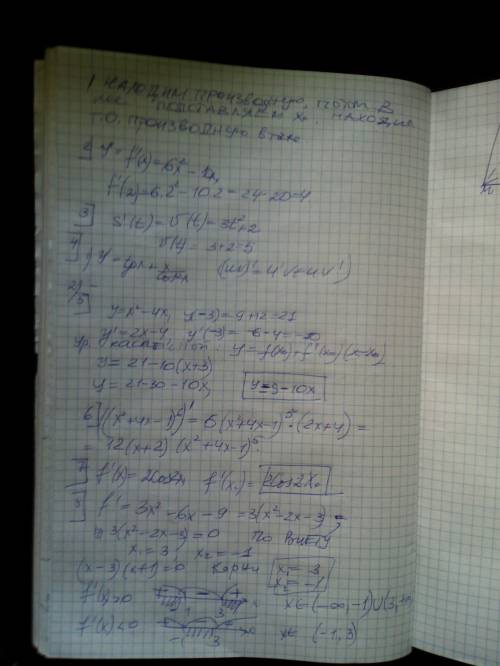 1 НАХОДИМ ПРОИЗВОДНУЮ, ПОТОМ В
ПОДСТАВЛЯЕМ X₀. НАХОДИМ
Т.О. ПРОИЗВОДНУЮ В
2] y = f'(x) = 6x² - 10x,
f'(2) = 6·2² - 10·2 = 24-20=4
3] S'(t) = v(t) = 3t²+2
v(t) = 3+2=5
4] y =
(uv)' = u'v + uv'
5 y=x²-4x, y(-3)=9+12=21
y'=2x-4 y'(-3) = -6-4=-10
Ур. касат. y=f(x₀)+f'(x₀)(x-x₀)
y = 21-10(x+3)
y = 21-30-10x, y=-9-10x
6] ((x²+4x-1)⁶)' = 6(x²+4x-1)⁵·(2x+4) =
= 12(x+2)(x²+4x-1)⁵
7] f'(x)=2cos2x f'(x₀)=2cos2x₀
8] f' = 3x²-6x-9 =3(x²-2x-3)=
3(x²-2x-3)=0 ПО ВИЕТУ
x₁=3 x₂=-1
(x-3)(x+1)=0 Корни x₁=3
x₂=-1
f'(x)>0 -1 3 x x∈(-∞,-1)∪(3,+∞)
f'(x)<0 -1 3 x∈ (-1,3)